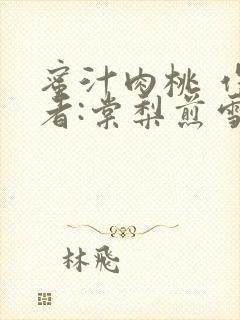 蜜汁肉桃
者:棠梨煎雪
林飛